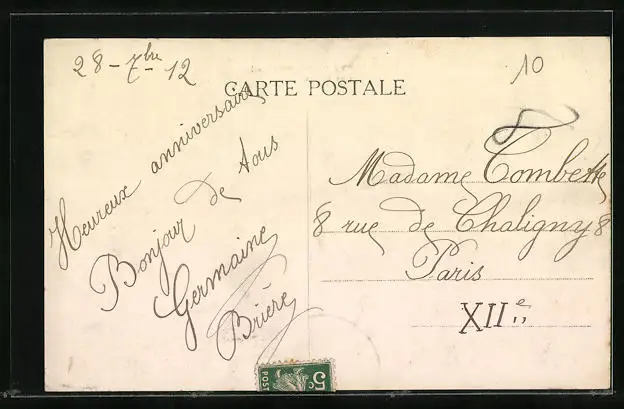 28-7bre 12
10
CARTE POSTALE
Heureux anniversaire
Bonjour de tous
Germaine
Brière
Madame Combette
8 rue de Chaligny 8
Paris
XIIe
5c
POST